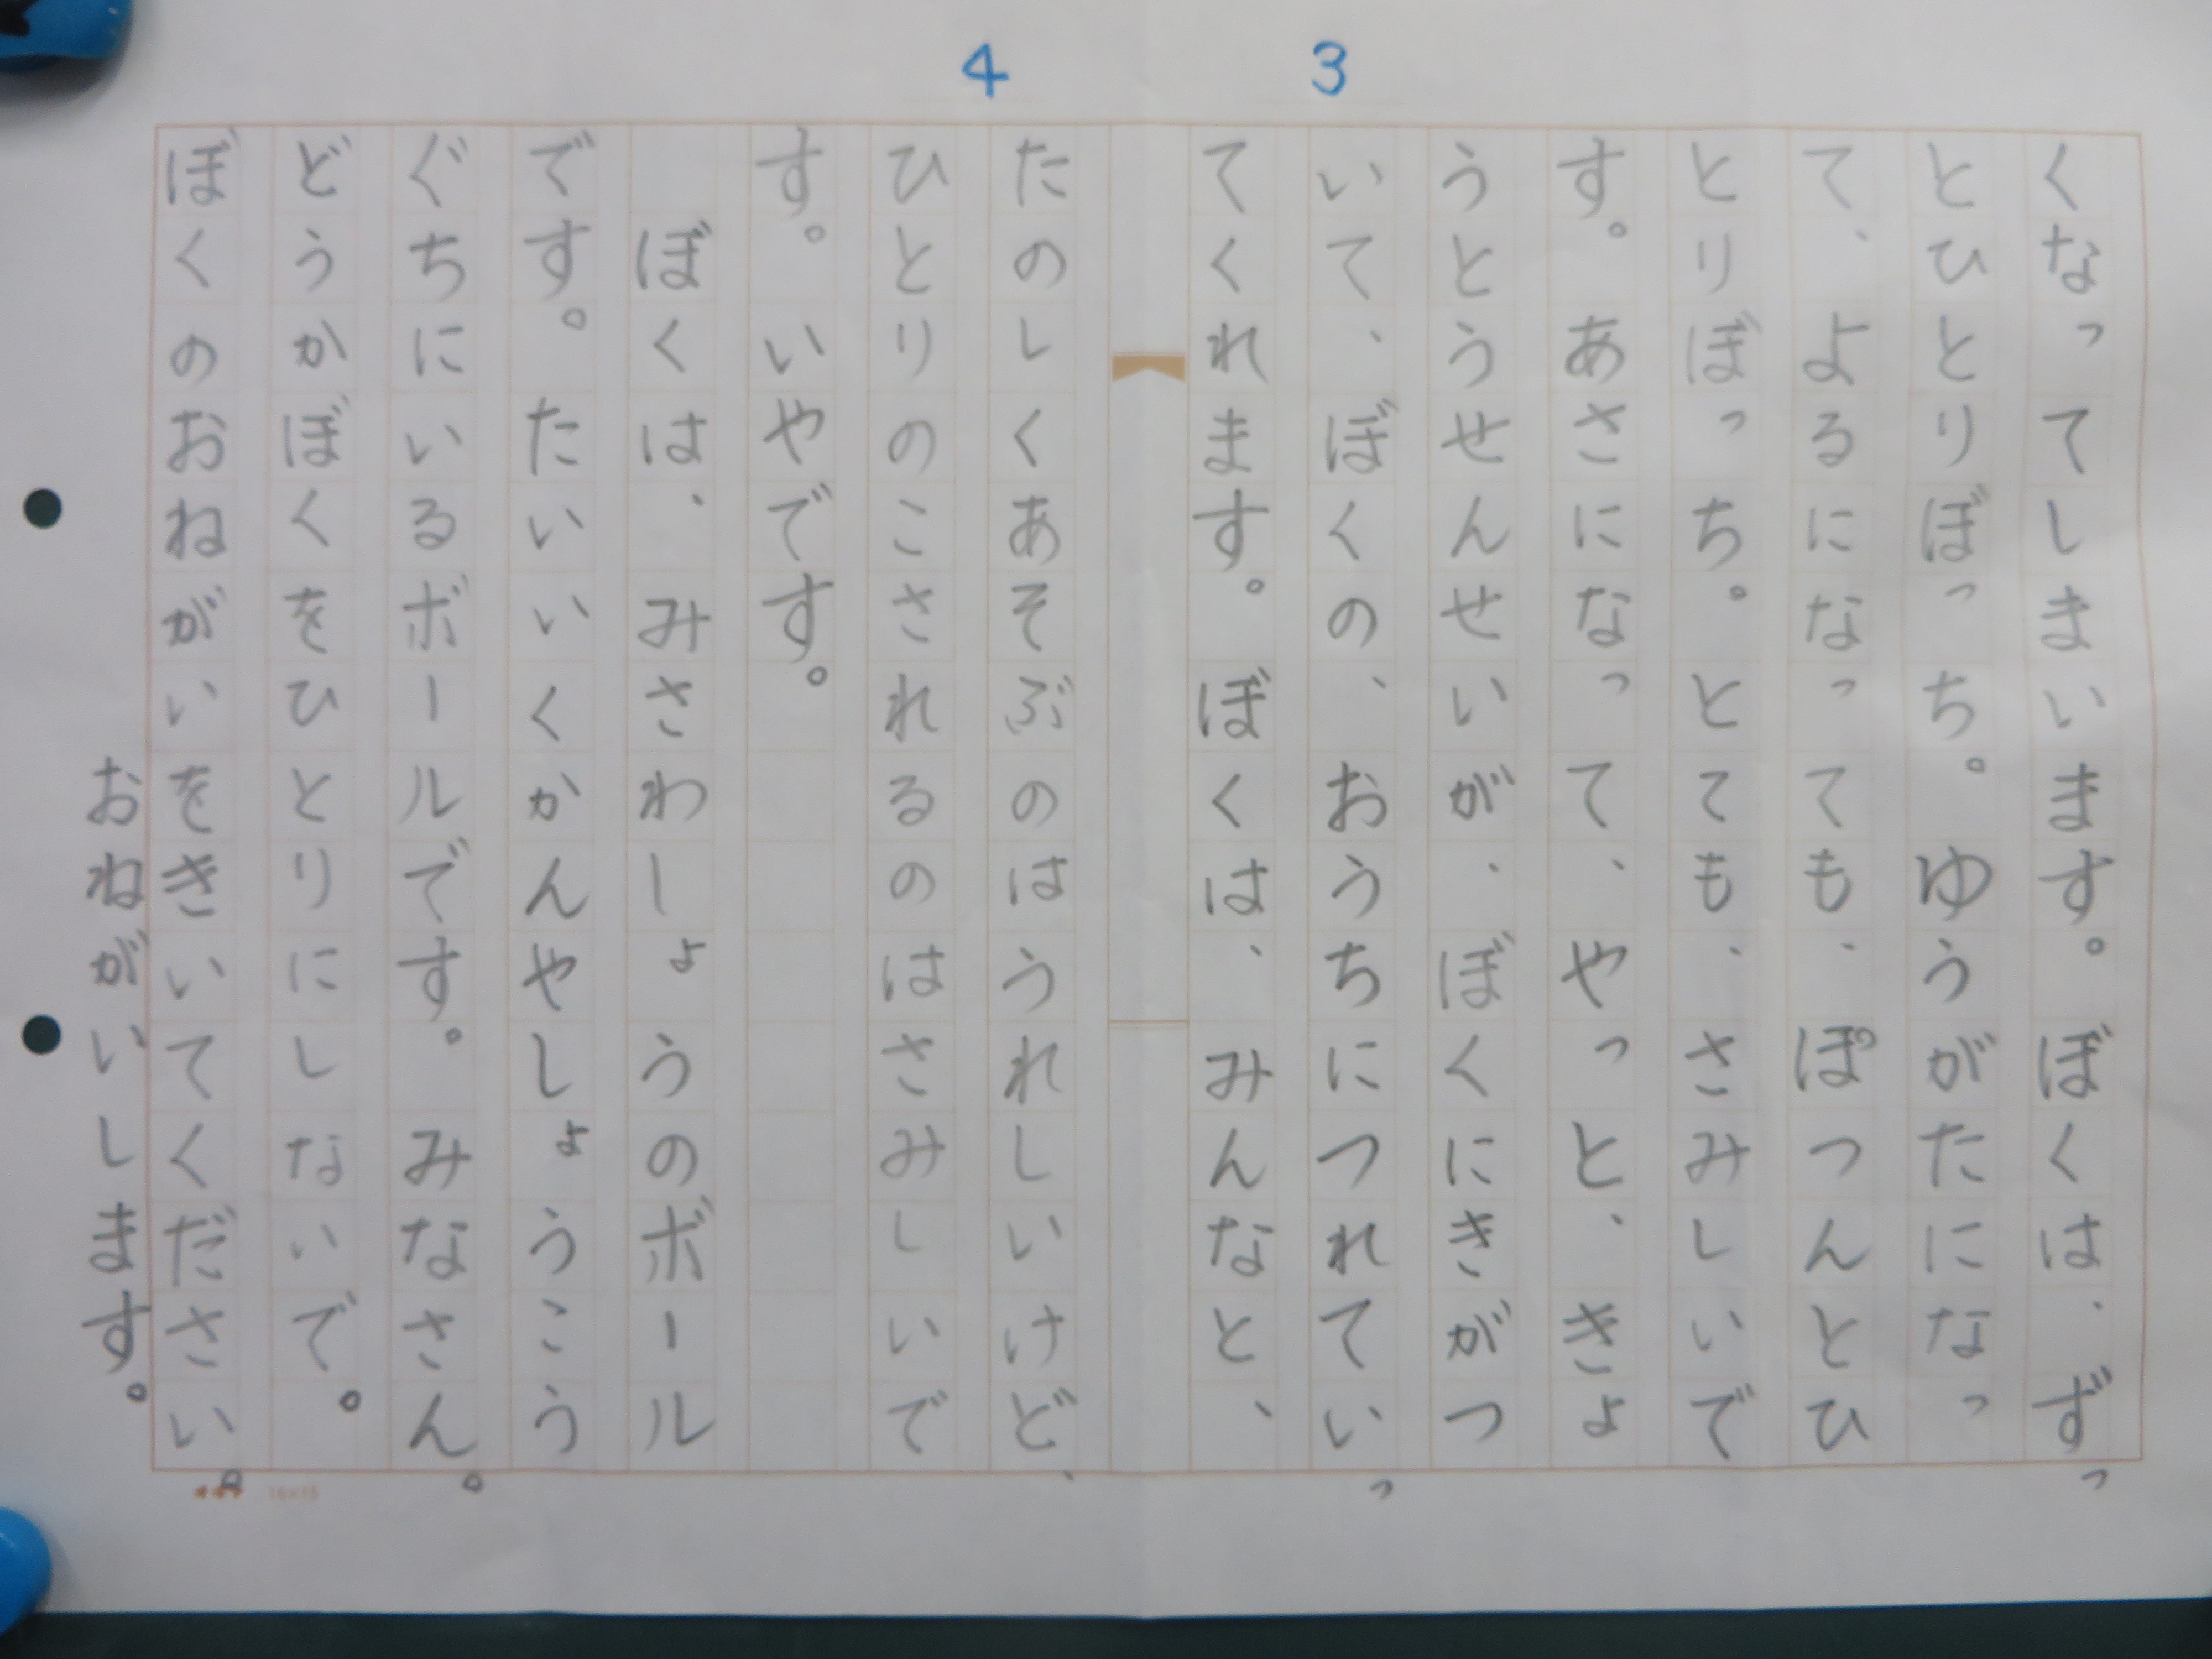 3
くなってしまいます。ぼくは、ずっ
とひとりぼっち。ゆうがたになっ
て、よるになっても、ぽつんとひ
とりぼっち。とても、さみしいで
す。あさになって、やっと、きょ
うとうせんせいが、ぼくにきがつ
いて、ぼくの、おうちにつれていっ
てくれます。ぼくは、みんなと、
4
たのしくあそぶのはうれしいけど、
ひとりのこされるのはさみしいで
す。いやです。
ぼくは、みさわしょうのボール
です。たいいくかんやしょうこう
ぐちにいるボールです。みなさん。
どうかぼくをひとりにしないで。
ぼくのおねがいをきいてください。
おねがいします。